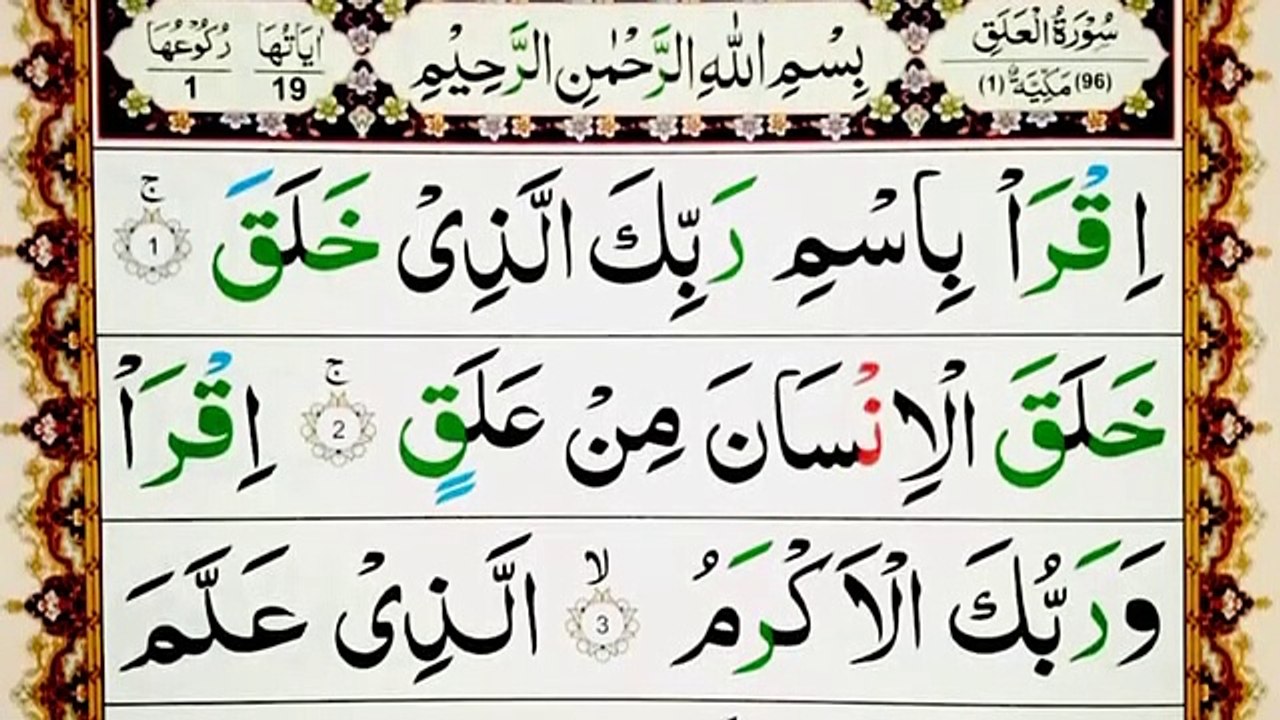 سُوْرَةُ الْعَلَقِ
(96) مَكِّيَّةٌ (1)
بِسْمِ اللّٰهِ الرَّحْمٰنِ الرَّحِيْمِ
اٰيَاتُهَا 19
رُكُوْعُهَا 1
اِقْرَاْ بِاسْمِ رَبِّكَ الَّذِىْ خَلَقَ ۚ 1
خَلَقَ الْاِنْسَانَ مِنْ عَلَقٍ ۚ 2 اِقْرَاْ
وَرَبُّكَ الْاَكْرَمُ ۙ 3 الَّذِىْ عَلَّمَ